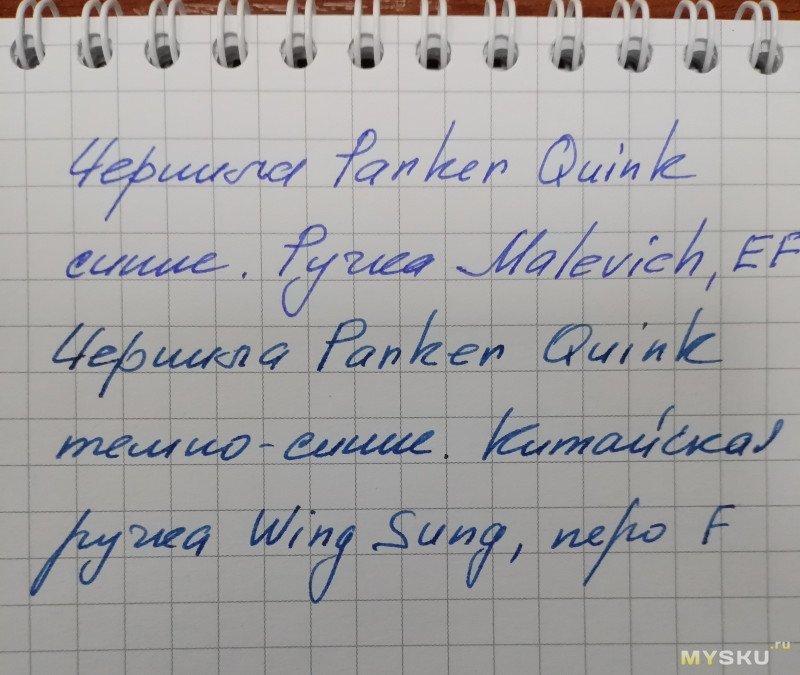 Чернила Parker Quink
синие. Ручка Malevich, EF
Чернила Parker Quink
темно-синие. Китайская
ручка Wing Sung, перо F
MYSKU.ru